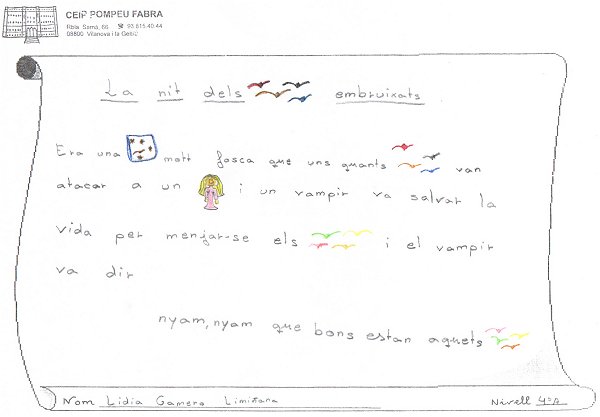 CEIP POMPEU FABRA
Rbla. Samà, 66 ☎ 93.815.40.44
08800 Vilanova i la Geltrú
La nit dels embruixats
Era una molt fosca que uns quants van
atacar a un i un vampir va salvar la
vida per menjar-se els i el vampir
va dir
nyam, nyam que bons estan aquets
Nom Lidia Gamero Limiñana
Nivell 4t A